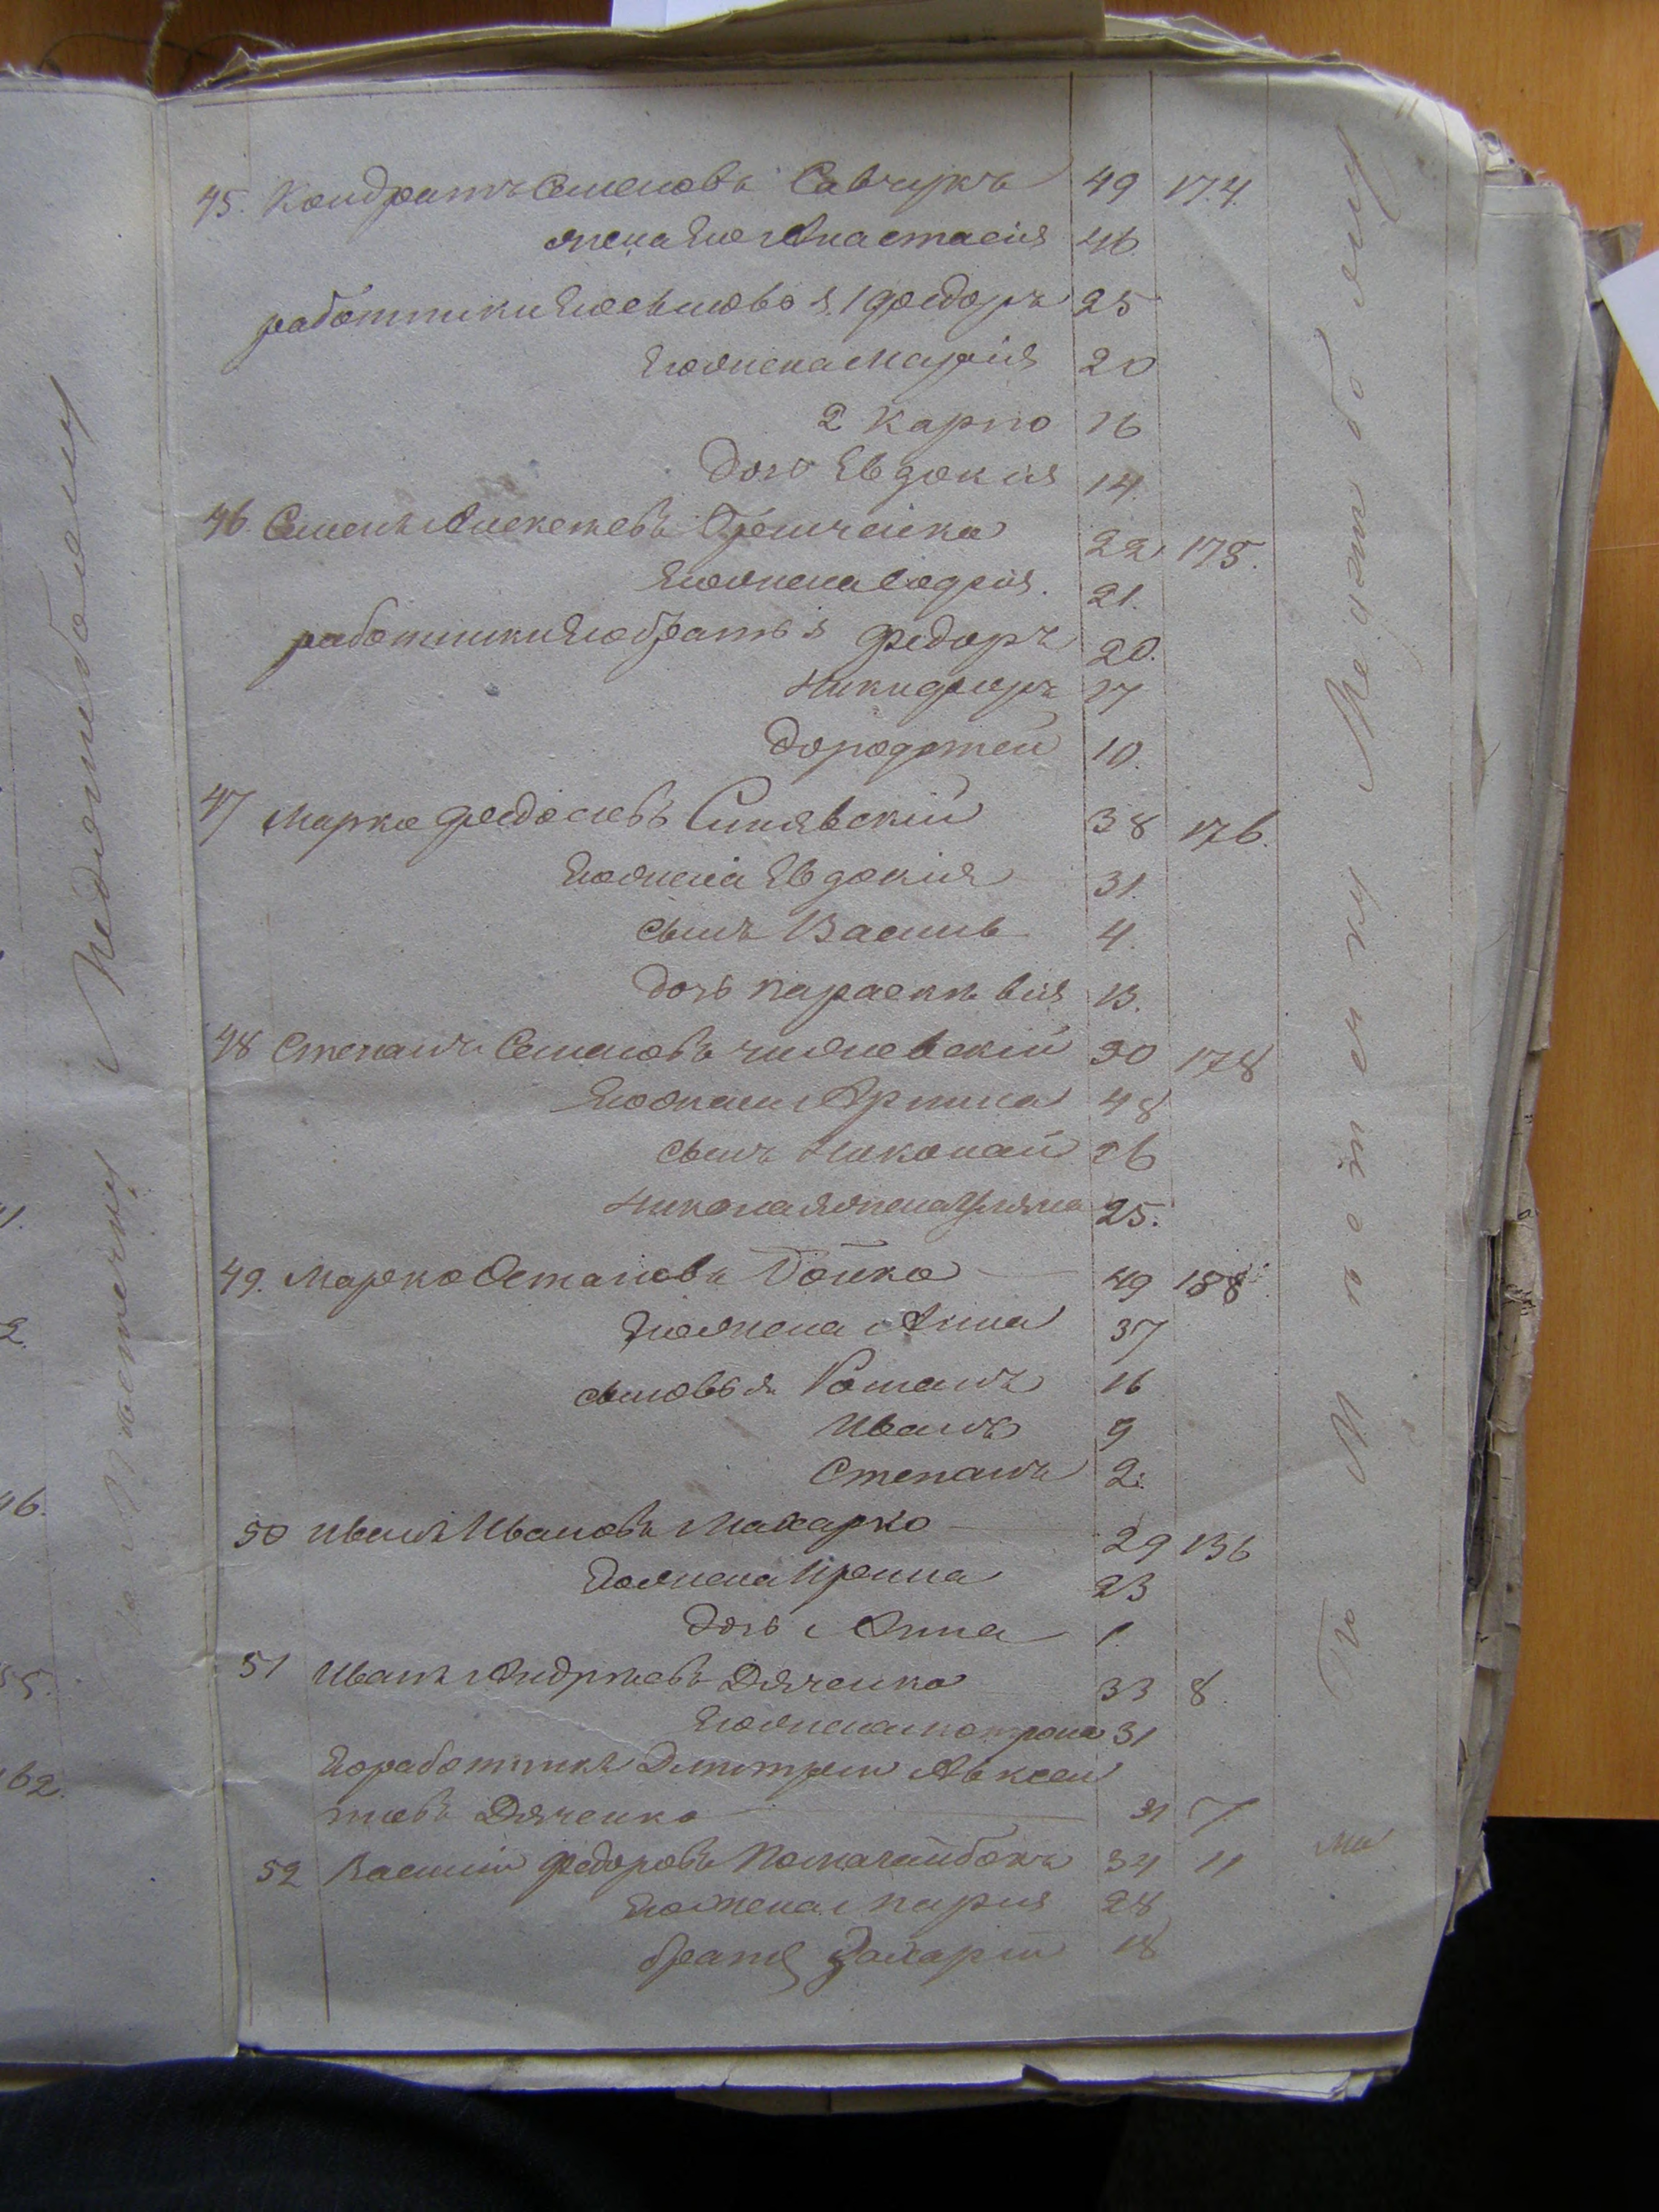 45. Кондратъ Семеновъ Савчукъ 49 174.
жена Его Анастасія 46.
работники Его сыновья 1 Федоръ 25
Его жена Марія 20
2 Карпо 16
дочь Евдокія 14.
46. Семенъ Алексеевъ 22 175.
Его жена Софія. 21.
работники Его братья Федоръ 20.
Никифоръ 17
Дорофтей 10.
47 Марко Федосіевъ Синявскій 38 176.
Его жена Евдокія 31.
сынъ Василь 4.
дочь Параскевія 13.
48 Степанъ Семеновъ 50 178
Его жена Ирина 48
сынъ Николай 26
Николая жена Уляна 25.
49. Марко Остаповъ Бойко 49 188
Его жена Анна 37
сыновья Романъ 16
Иванъ 9
Степанъ 2.
50 Иванъ Ивановъ Макарко 29 136
Его жена Ирина 23
дочь Анна 1.
51 Иванъ Андреевъ Дяченко 33 8.
Его жена Мотрона 31
Его работникъ Дмитрий Авксен
тіевъ Дяченко 31 7
52 Василій Федоровъ 34 11
Его жена Марія 28
братъ Захарій 18
По Мѣстечку Меджибожу
По Мѣстечку Меджибожу
1.
2.
46.
55.
62.